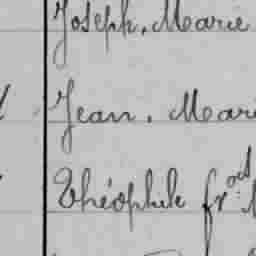 Joseph. Marie
Jean. Mari
Théophile fr.